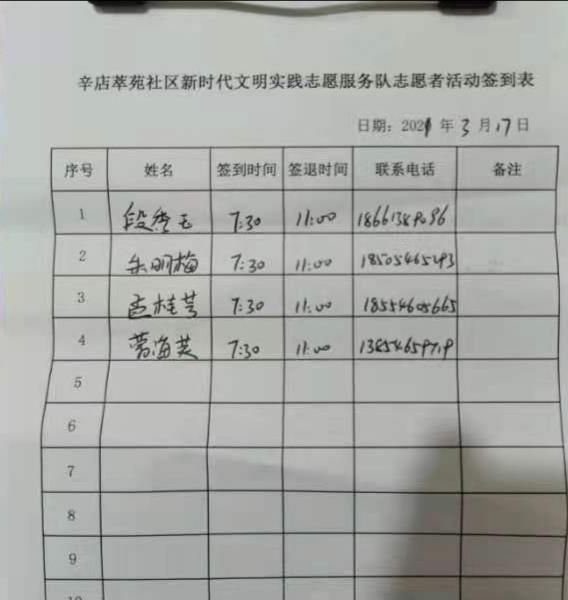 辛店萃苑社区新时代文明实践志愿服务队志愿者活动签到表
日期：2021年3月17日
序号 姓名 签到时间 签退时间 联系电话 备注
1 段秀玉 7:30 11:00 18661389096
2 朱明梅 7:30 11:00 18505465293
3 孟桂芸 7:30 11:00 18554605665
4 黄海英 7:30 11:00 13854659719
5
6
7
8
9
10